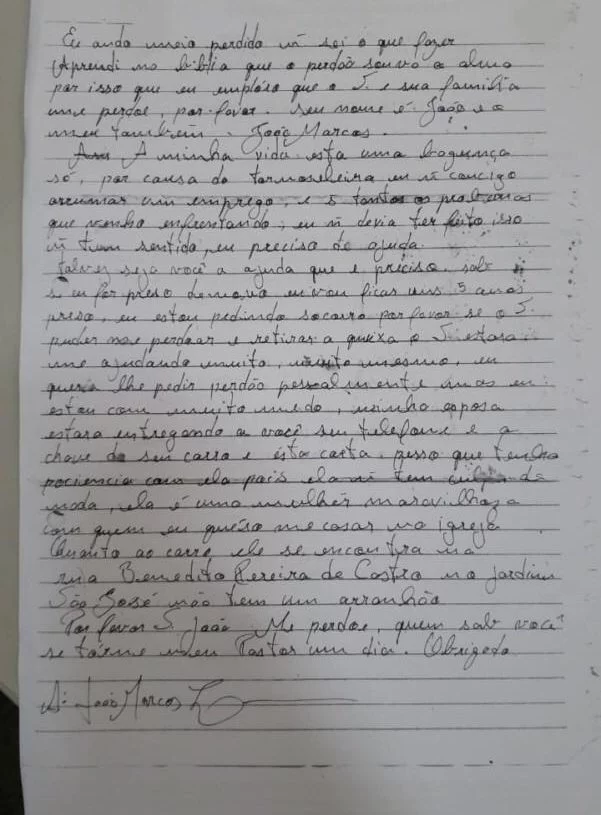 Eu ando meio perdido ñ sei o que fazer
Aprendi na bíblia que o perdão salva a alma
por isso que eu emploro que o S. e sua família
me perdoe, por favor. seu nome é João e o
meu também. João Marcos.
A minha vida esta uma bagunça
só, por causa da tornoseleira eu ñ concigo
arrumar um emprego, e s tantos os problemas
que venho enfrentando, eu ñ devia ter feito isso
ñ tem sentido, eu preciso de ajuda.
talvez seja você a ajuda que e preciso. sab
se eu for preso denovo eu vou ficar uns 5 anos
preso, eu estou pedindo socorro por favor se o S.
puder me perdoar e retirar a queixa o S. estara
me ajudando muito, muito mesmo, eu
queria lhe pedir perdão pessoalmente mas eu
estou com muito medo, minha esposa
estara entregando a você seu telefone e a
chave do seu carro e esta carta. peço que tenha
paciencia com ela pois ela ñ tem culpa de
nada, ela é uma mulher maravilhoza
com quem eu quéro me casar na igreja
Quanto ao carro, ele se encontra na
rua Benedito Pereira de Castro no jardim
São José não tem um arranhão
Por favor S. João Me perdoe, quem sab você
se torne meu Pastor um dia. Obrigado
A: João Marcos